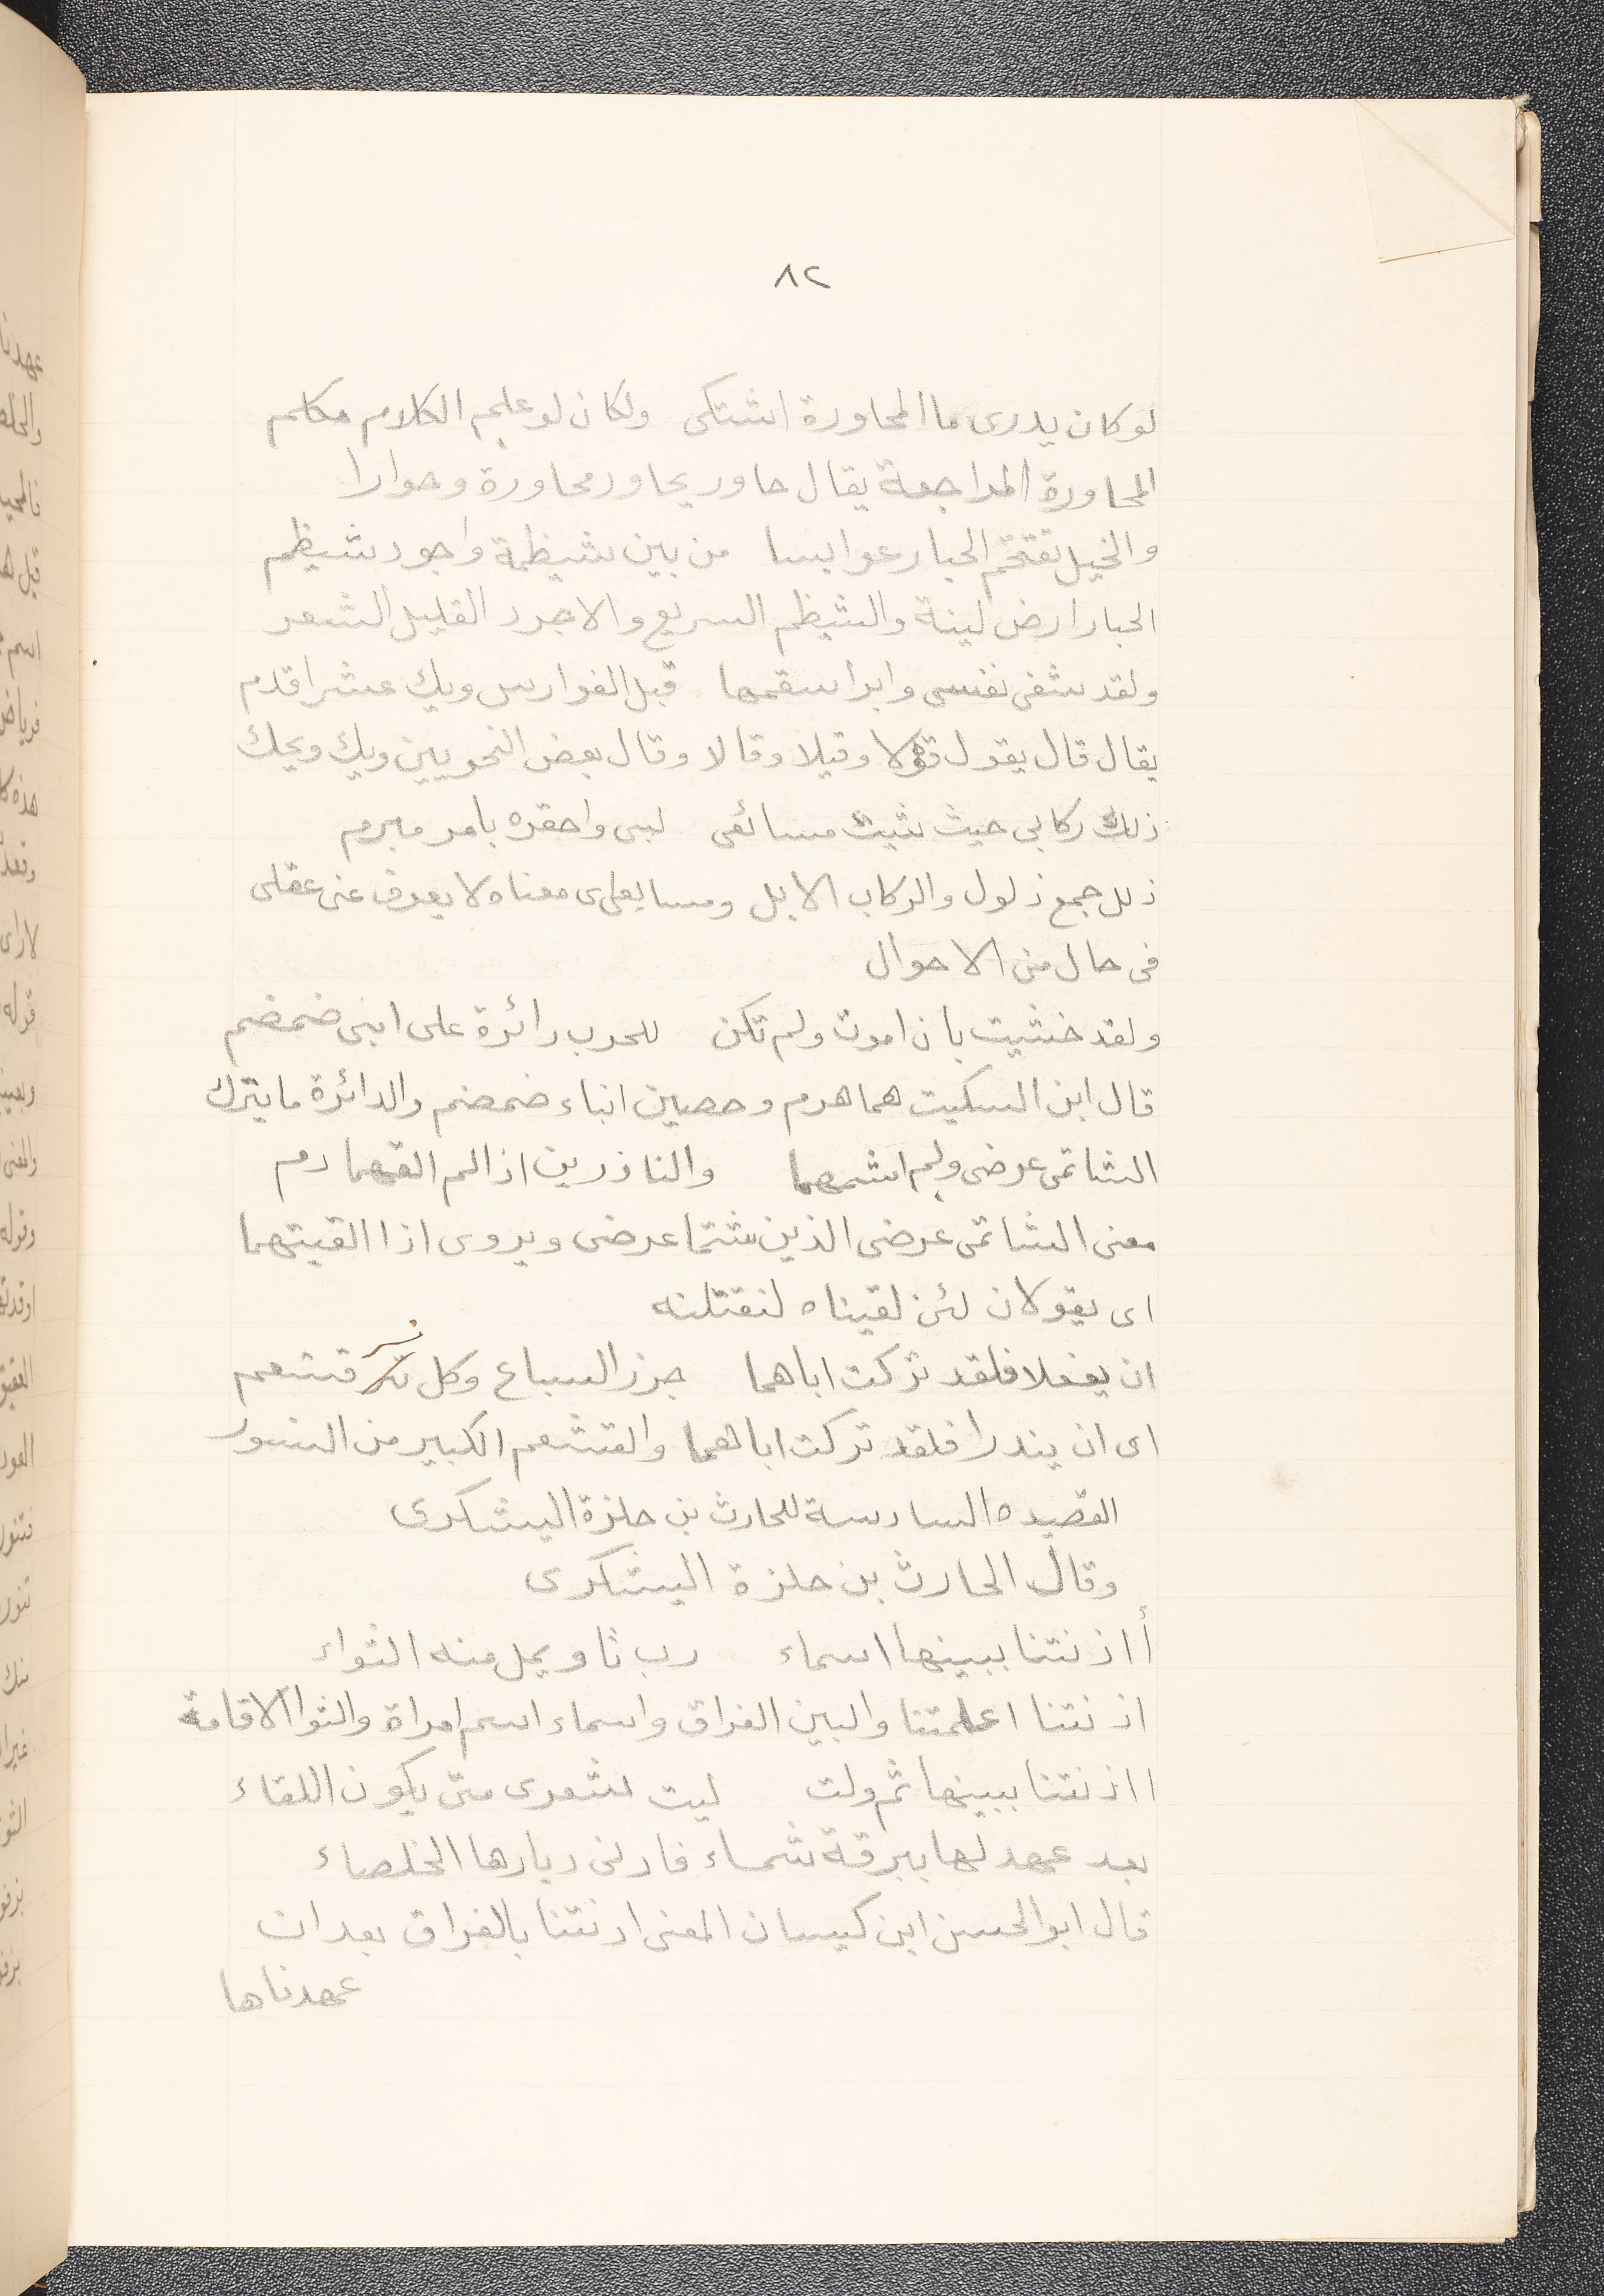 ٨٢
لو كان يدرى ما المحاورة اشتكى ولكان لو علم الكلام مكلم
المحاورة المراجعة يقال حاور يحاور محاورة وحوارا
والخيل تقتحم الخبار عوابسا من بين شيظمة واجرد شيظم
الخبار ارض لينة والشيظم السريع والاجرد القليل الشعر
ولقد شفى نفسى وابرأ سقمها قبل الفوارس ويك عنتر اقدم
يقال قال يقول قولا وقيلا وقالا وقال بعض النحويين ويك ويحك
ذلك ركابى حيث شيت مسائعى لبى واحقره بامر مبرم
ذلل جمع ذلول والركاب الابل ومسايعى معناه لا يعرف عنى عقلى
فى حال من الاحوال
ولقد خشيت بان اموت ولم تكن للحرب دائرة على ابنى ضمضم
قال ابن السكيت هما هرم وحصين ابناء ضمضم والدائرة ما ينزل
الشاتمى عرضى ولم اشتمهما والناذرين اذا لم القهما دم
معنى الشاتمى عرضى الذين شتما عرضى ويروى اذا القيتهما
اى يقولان لئن لقيناه لنقتلنه
ان يفعلا فلقد تركت اباهما جزر السباع وكل نسر قشعم
اى ان يندرا فلقد تركت اباهما والقشعم الكبير من النسور
القصيده السادسة للحارث بن حلزة اليشكرى
وقال الحارث بن حلزة اليشكرى
أاذنتنا ببينها اسماء رب ثاو يمل منه الثواء
اذنتنا اعلمتنا والبين الفراق واسماء اسم امراة والثوا الاقامة
ااذنتنا ببينها ثم ولت ليت شعرى متى يكون اللقاء
بعد عهد لها ببرقة شماء فادنى ديارها الخلصاء
قال ابو الحسن ابن كيسان المعنى اذنتنا بالفراق بعد ان
عهدناها